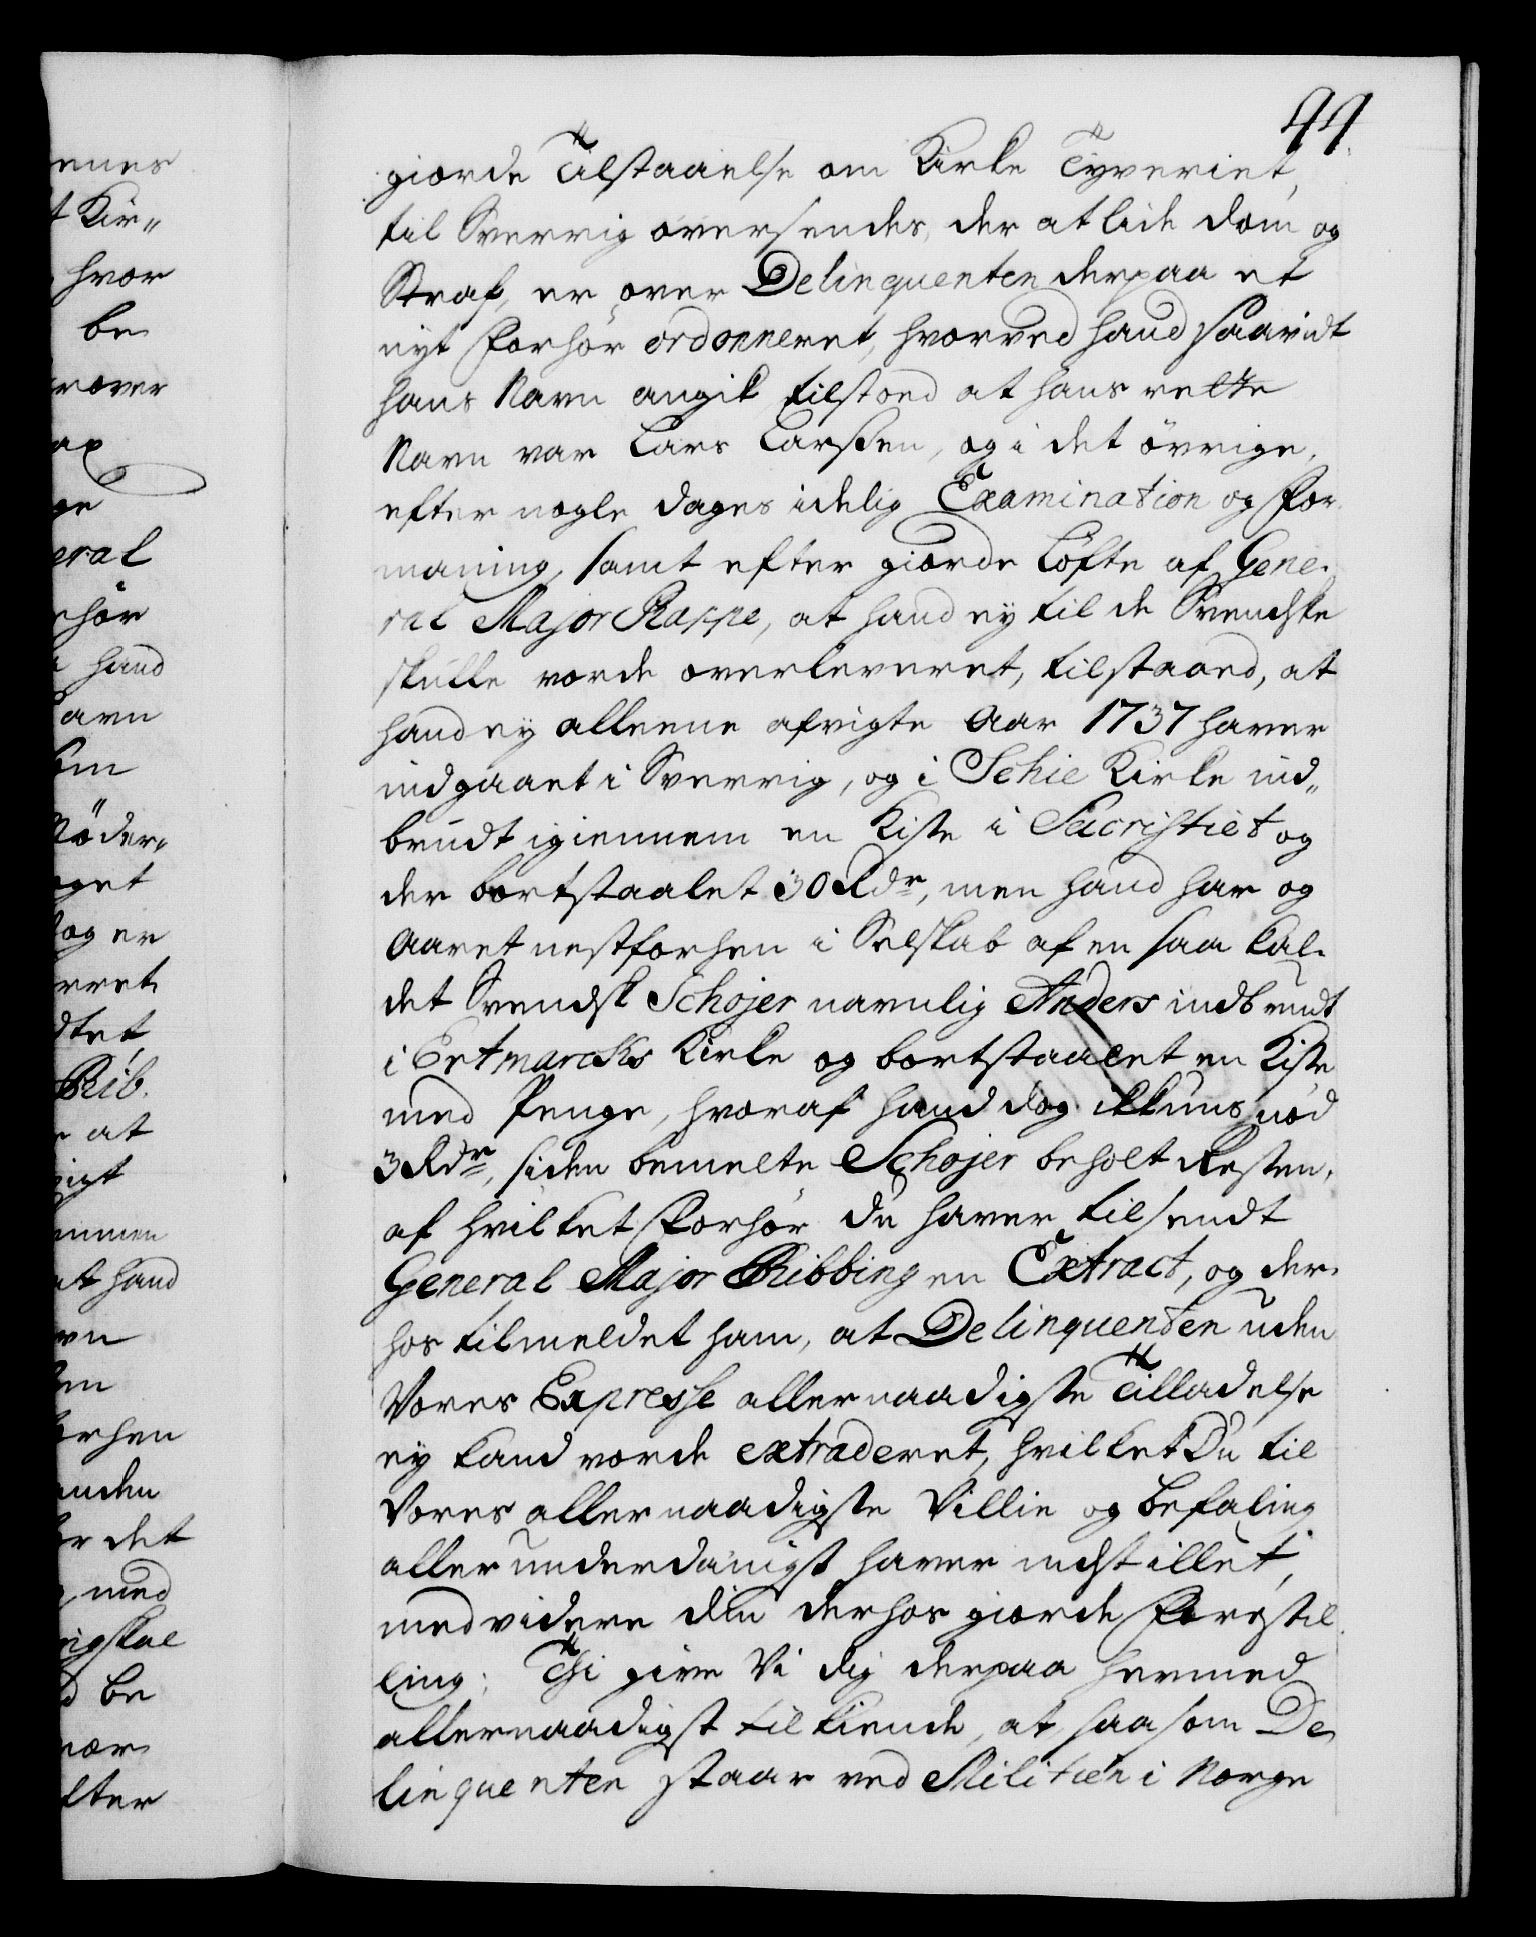 44.
enes
t Kir„
hvor
be
rover
ap
ge
eral
rhör
hand
avn
om
Röder„
oget
dog er
rret
dtet
Rib.
at
igt
ommen
at hand
vn
en
orhen
anden
or det
med
ligskal
d be
nær
efter
giorde Tilstaaelse om Kirke Tyveriet,
til Sverrig oversendes, der at lide dom og
Straf, er over Delinquenten derpaa et
nyt Forhör ordonneret, hvorved hand saavidt
hans Navn angik tilstoed at hans rette
Navn var Lars Larssen, og i det övrige,
efter nogle dages idelig Examination og For
maning, samt efter giorde Löfte af Gene„
ral Major Rappe, at hand ey til de Svendske
skulle vorde overleveret, tilstaaed, at
hand ey alleene afvigte Aar 1737 haver
indgaaet i Sverrig, og i Schie Kirke ind„
brudt igiennem en Kiste i Sacristiet og
der bortstaalet 30 Rdr, men hand har og
Aaret nestforhen i Selskab af en saa kal„
det Svendsk Schojer navnlig Anders indbrudt
i Ertmarcks Kirke og bortstaalet en Kiste
med Penge, hvoraf hand dog ikkuns nöd
3 Rdr, siden bemelte Schojer beholt Resten,
af hvilket Forhör du haver tilsendt
General Major Ribbing en Extract, og der„
hos tilmeldet ham, at Delinquenten uden
Vores Expresse allernaadigste Tilladelse
ey kand vorde extraderet, hvilket Du til
Vores allernaadigste Villie og befaling
allerunderdanigst haver indstillet,
med videre din derhos giorde Forestil
ling: Thi give Vi dig derpaa hermed
allernaadigst tilkiende, at saasom De„
linquenten staar ved Militien i Norge